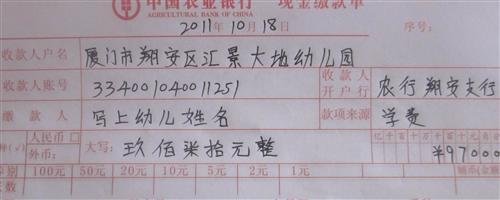 中国农业银行 现金缴款单
AGRICULTURAL BANK OF CHINA
2011年10月18日 序号:
收款人户名 厦门市翔安区汇景大地幼儿园
收款人账号 334001040011251 收款人开户行 农行翔安支行
缴款人 写上幼儿姓名 款项来源 学费
人民币 外币: 大写: 玖佰柒拾元整 亿千百十万千百十元
¥97000
100元 50元 20元 10元 5元 2元 1元 辅币(金额)
张数